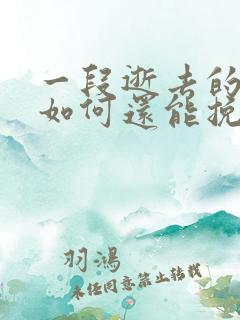 一段逝去的
如何還能挽
羽鴻
未經同意禁止轉載